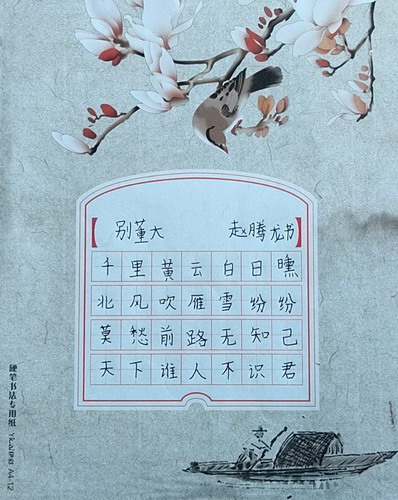 别董大 赵腾龙书
千里黄云白日曛
北风吹雁雪纷纷
莫愁前路无知己
天下谁人不识君
硬笔书法专用纸